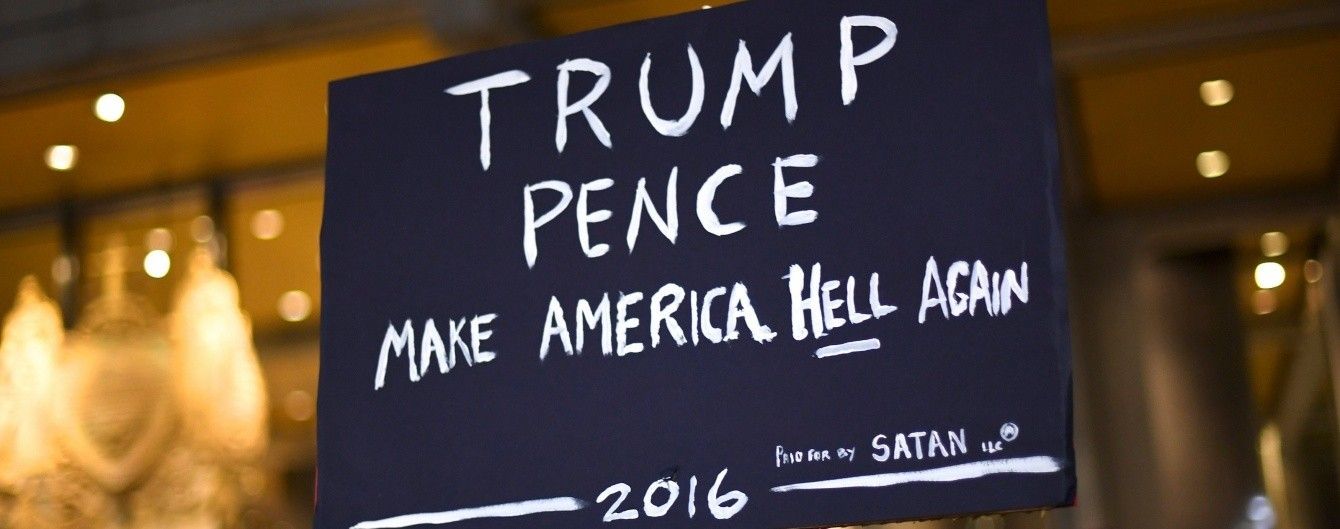 TRUMP
PENCE
MAKE AMERICA HELL AGAIN
PAID FOR BY SATAN LLC
2016